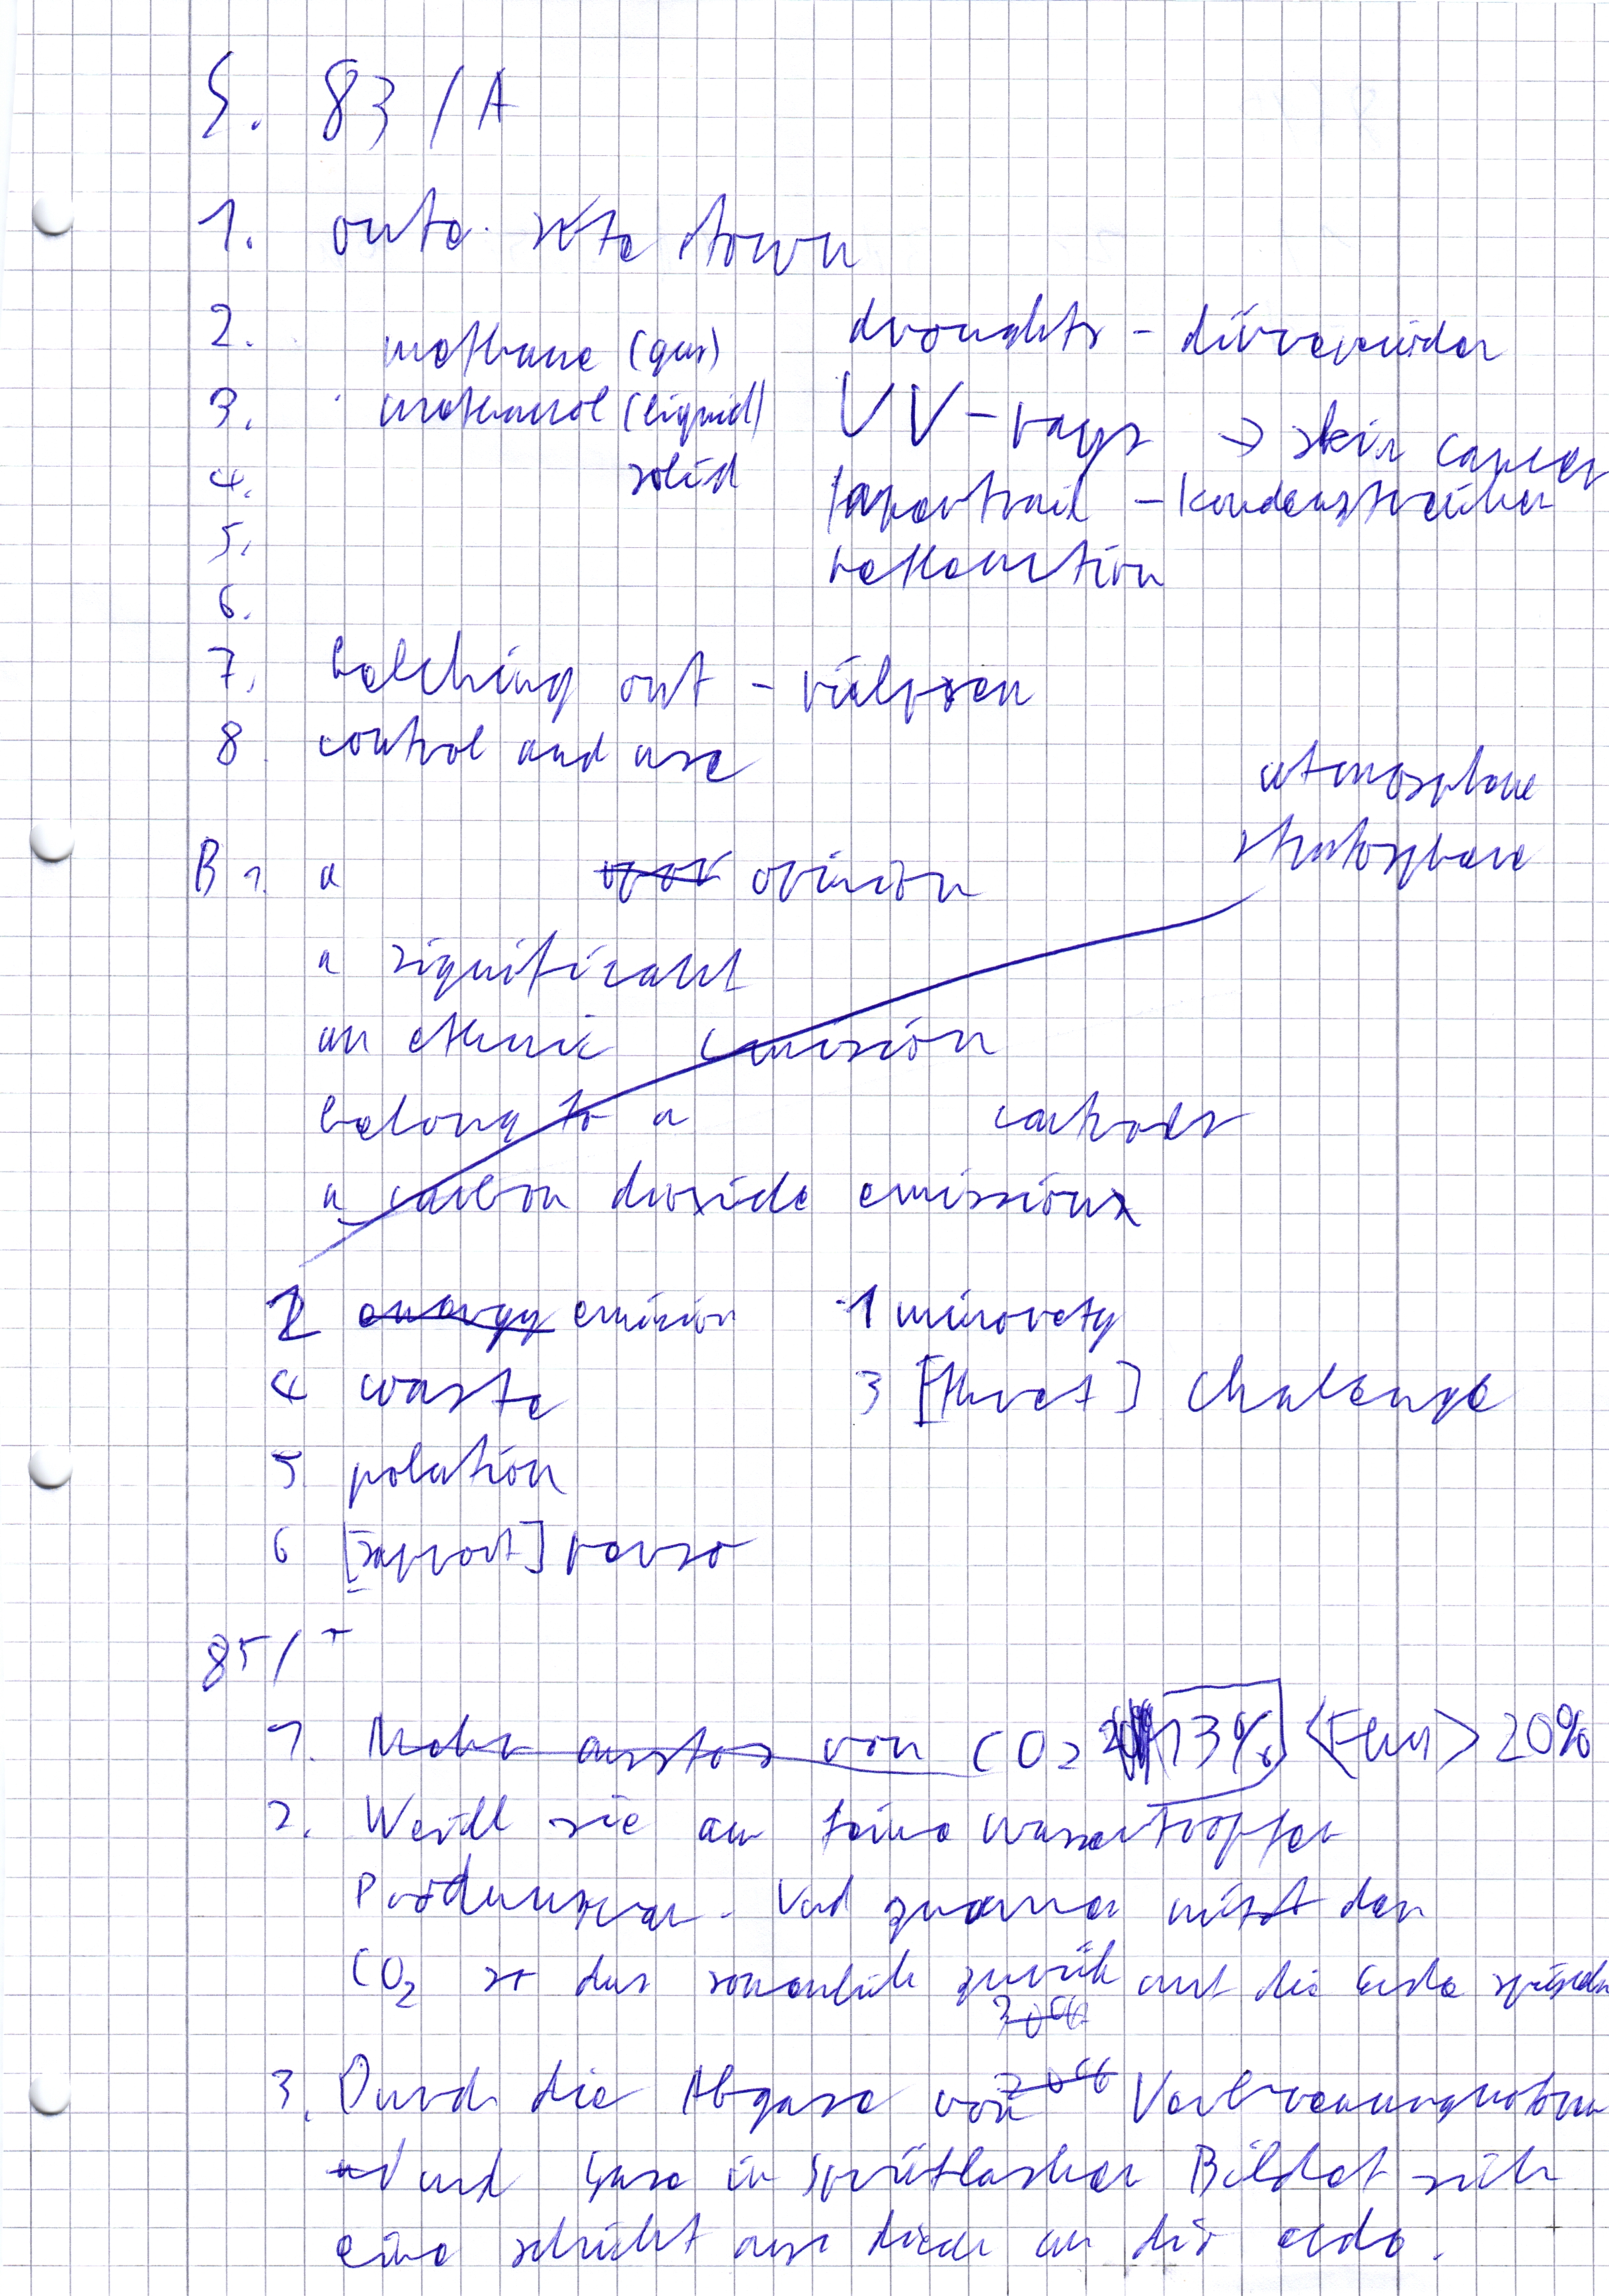 S. 83 / A
1. oute. site town
2. methane (gas) droughts - dürreperioden
3. methanol (liquid) UV-rays → skin cancer
4. solid vaportrail - Kondenstreifen
5. reflection
6.
7. belching out - rülpsen
8. control and use
atmosphere
stratosphere
B 1. a opinion
a significant
an ethnic emision
belong to a
a carbon dioxide emissions
2 energy emision 1 minorety
4 waste 3 [threat] chalenge
5 polution
6 [support] power
85 /
1. Mehr austos von CO2 13% 20%
2. Weill sie an feine wassertropfen
Und mit den
CO2 so das zurük auf die Erde
3. Durch die Abgase von
und Gase in Sprütflaschen Bildet sich
eine schicht aus an die erde.